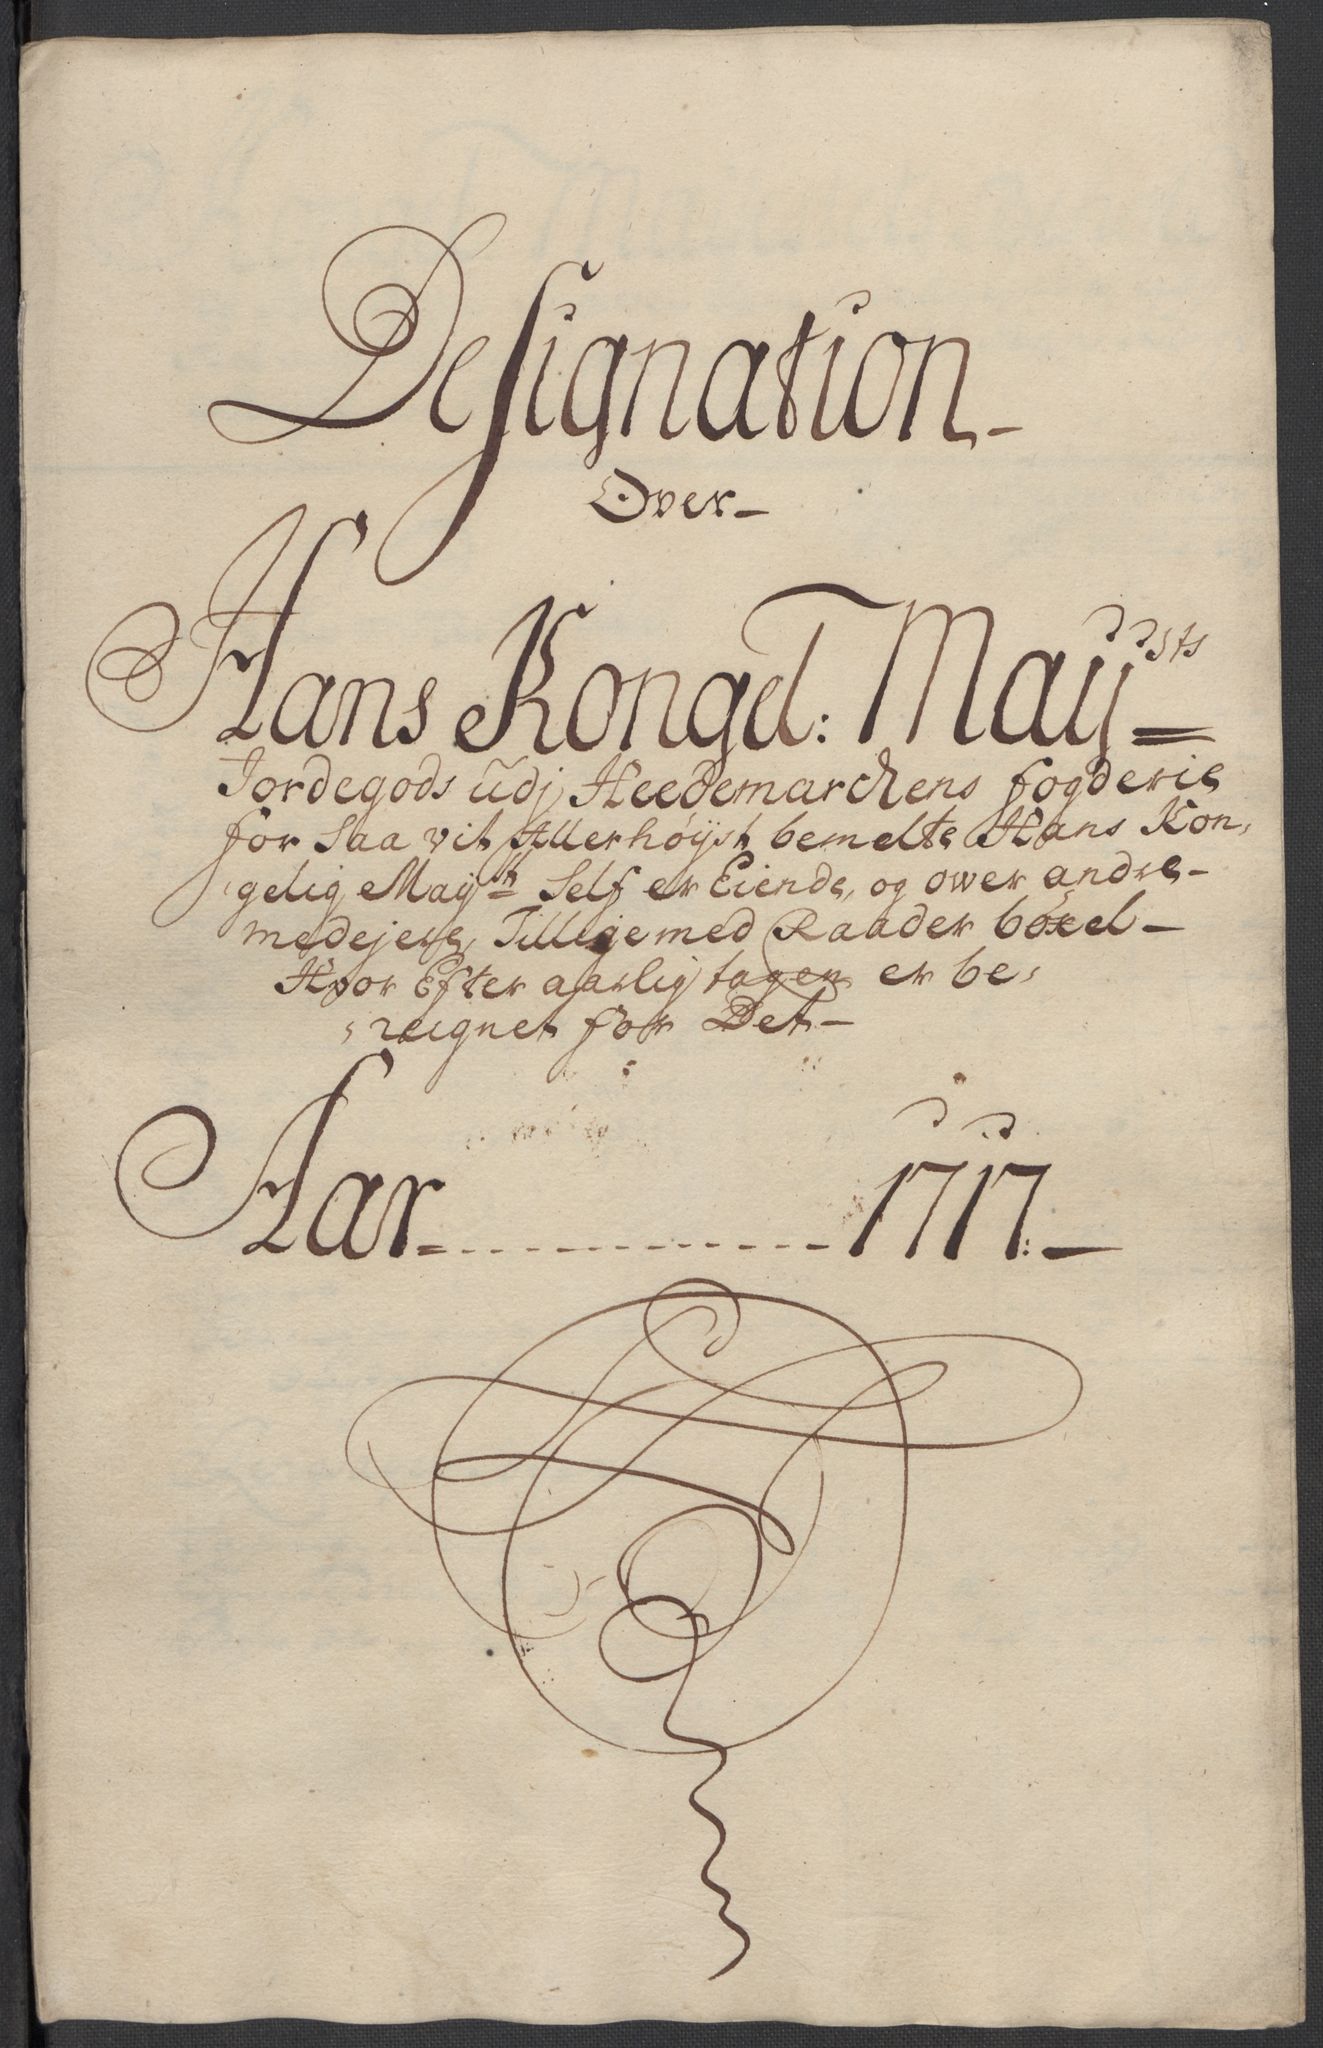 Designation
Over
Hans Kongel: May^sts
Jordegods udj Heedemarckens fogderie
for Saa vit Allerhøyst bemelte Hans Kon,
gelig May^tt Self er Eiende, og ower andre
medejere, Tillige med Raader boxel
Hvor Efter aarlig tagen er be,
reignet for Det
Aar 1717.